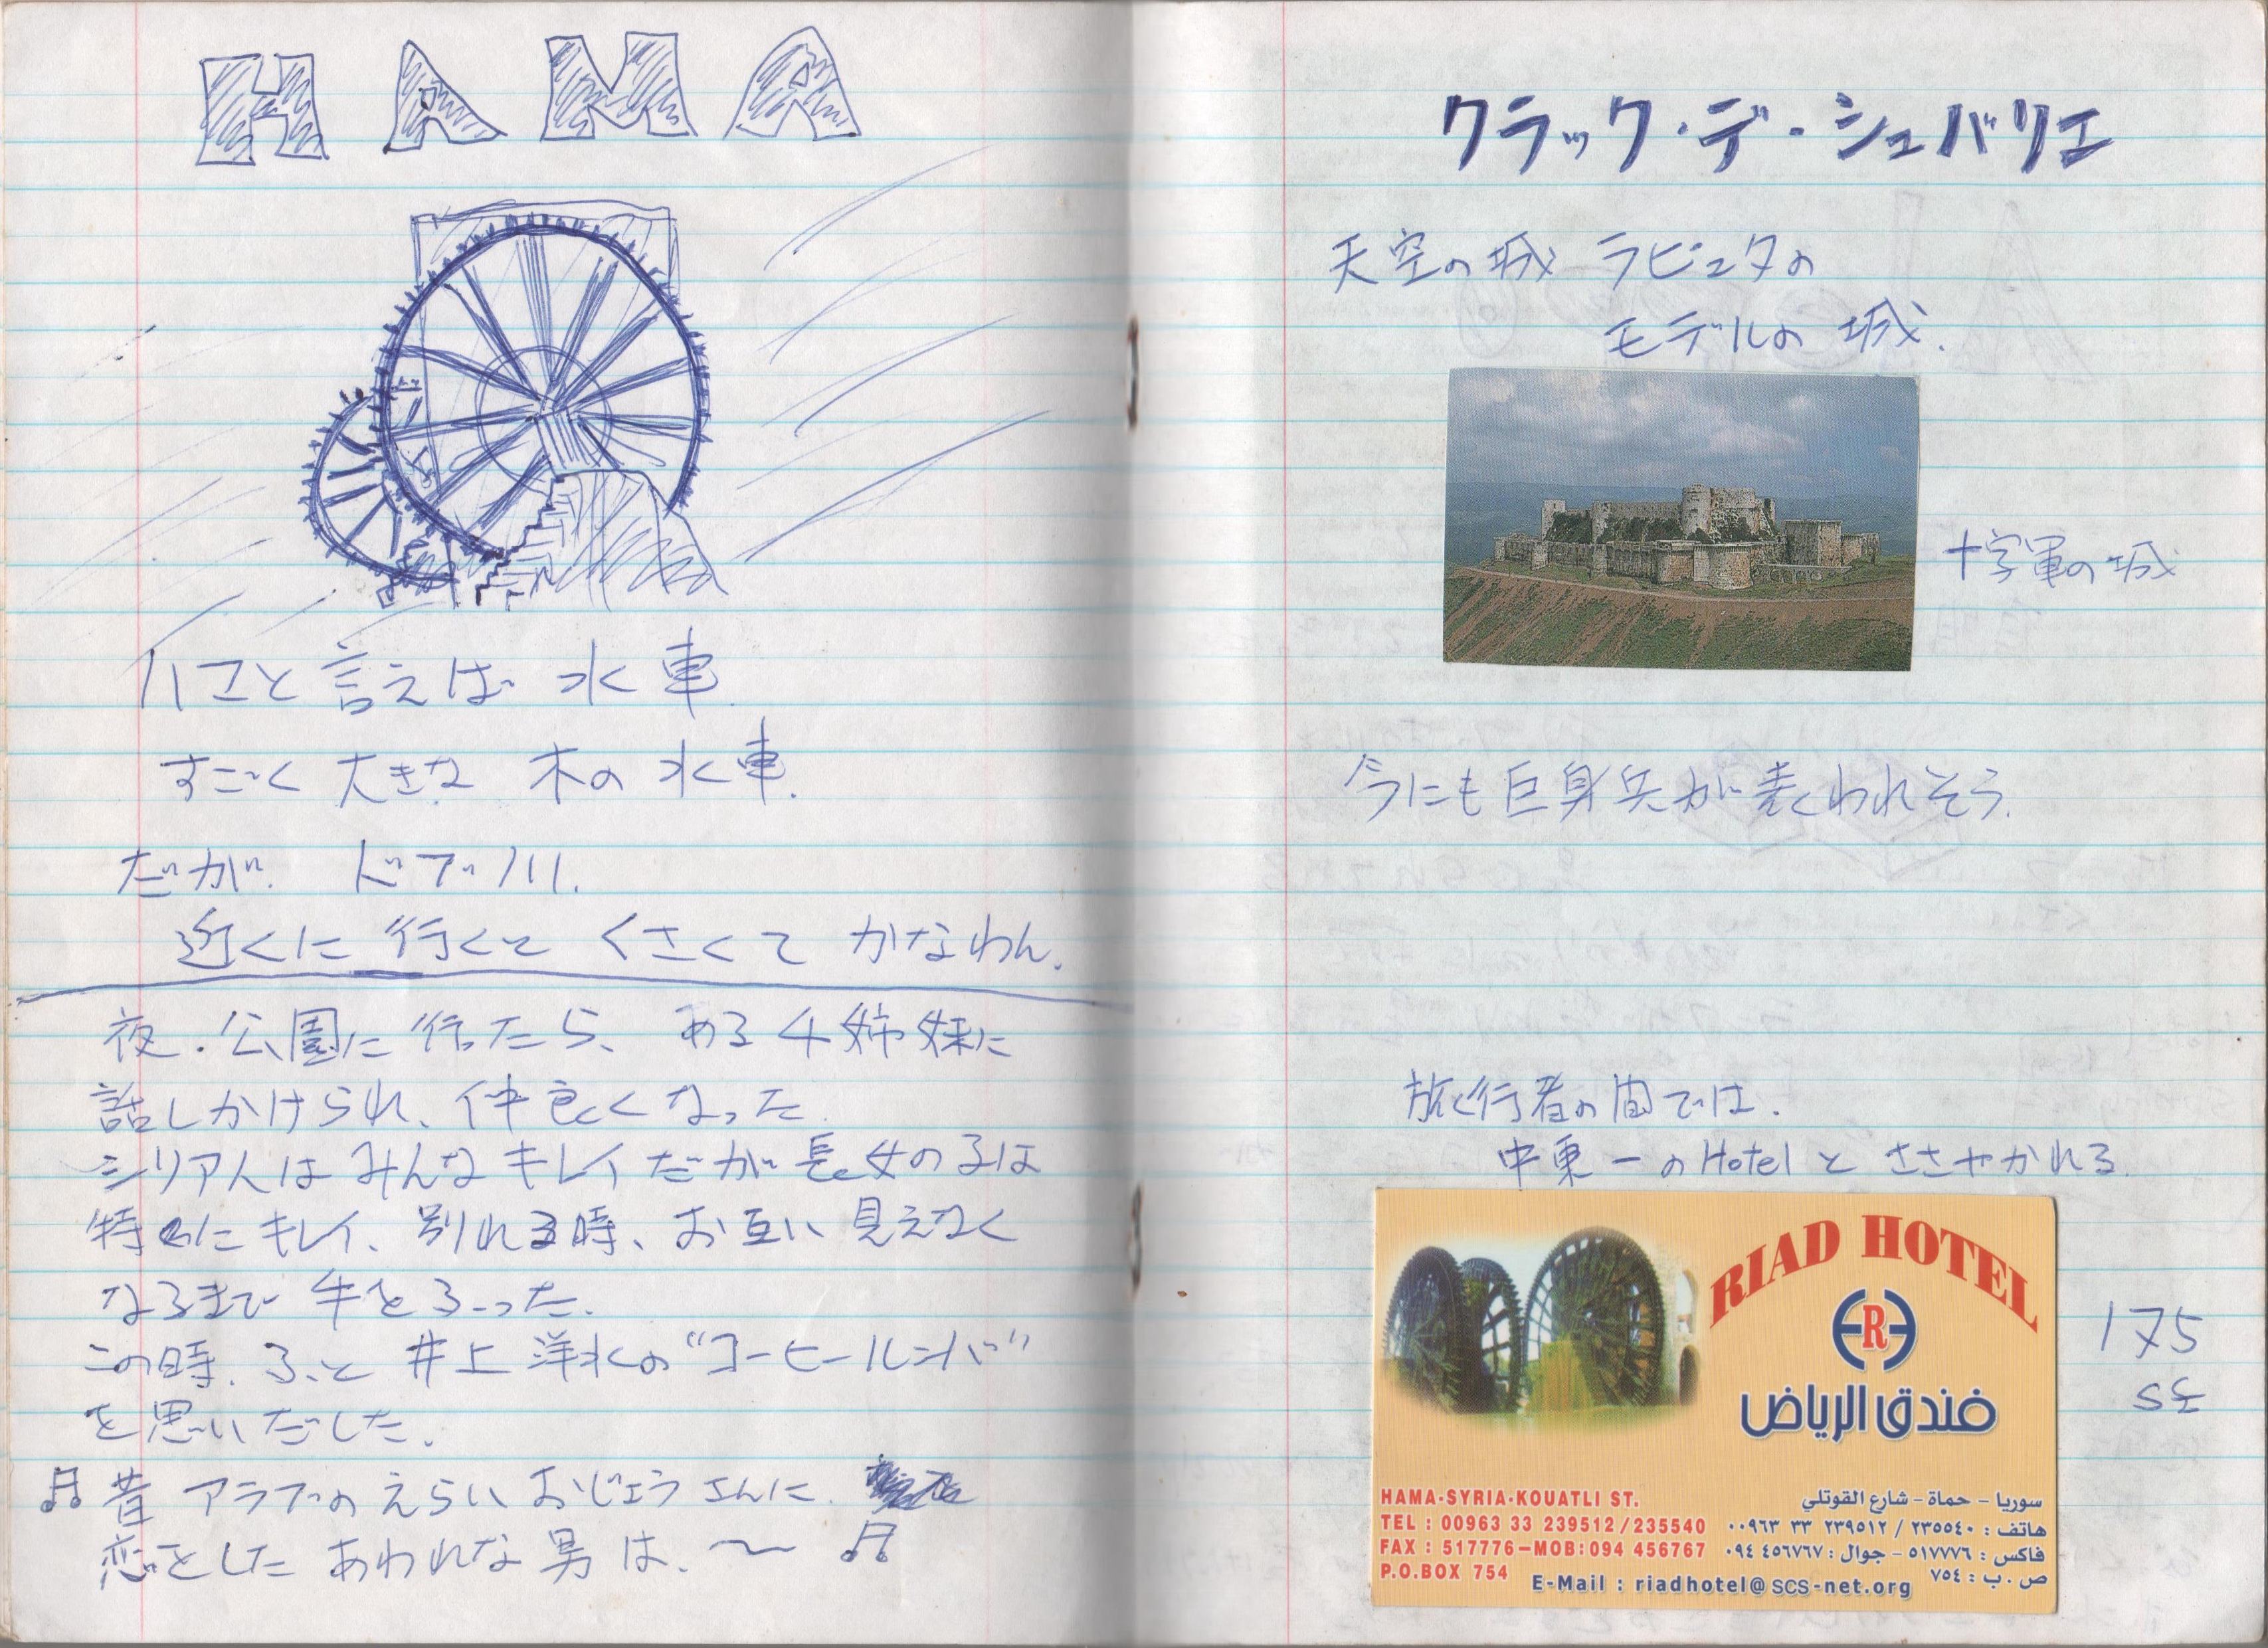 HAMA
ハマと言えば 水車.
すごく 大きな 木の 水車.
だが. ドブ川.
近くに 行くと くさくて かなわん.
夜.公園に行ったら、ある4姉妹に
話しかけられ、仲良くなった.
シリア人はみんなキレイだが長女の子は
特にキレイ、別れる時、お互い見えなく
なるまで手をふった.
この時.ふと 井上洋水の“コーヒールンバ”
を思いだした.
♫ 昔 アラブの えらい おじょうさんに.
恋をした あわれな 男は.〜 ♫
クラック・デ・シュバリエ
天空の城 ラピュタの
モデルの 城.
十字軍の城
今にも巨身兵が表くわれそう.
旅行者の間では.
中東一のHotelと ささやかれる.
RIAD HOTEL
R
فندق الرياض
175
S£
HAMA-SYRIA-KOUATLI ST.
TEL : 00963 33 239512/235540
FAX : 517776-MOB:094 456767
P.O.BOX 754
سوريا - حماة - شارع القوتلي
هاتف : ٢٣٥٥٤٠ / ٢٣٩٥١٢ ٣٣ ٠٠٩٦٣
فاكس : ٥١٧٧٧٦ - جوال : ٤٥٦٧٦٧ ٠٩٤
ص . ب : ٧٥٤
E-Mail : riadhotel@scs-net.org